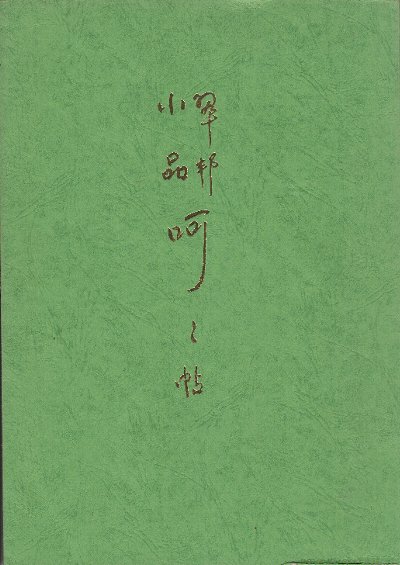 翠邦
小品
呵々帖